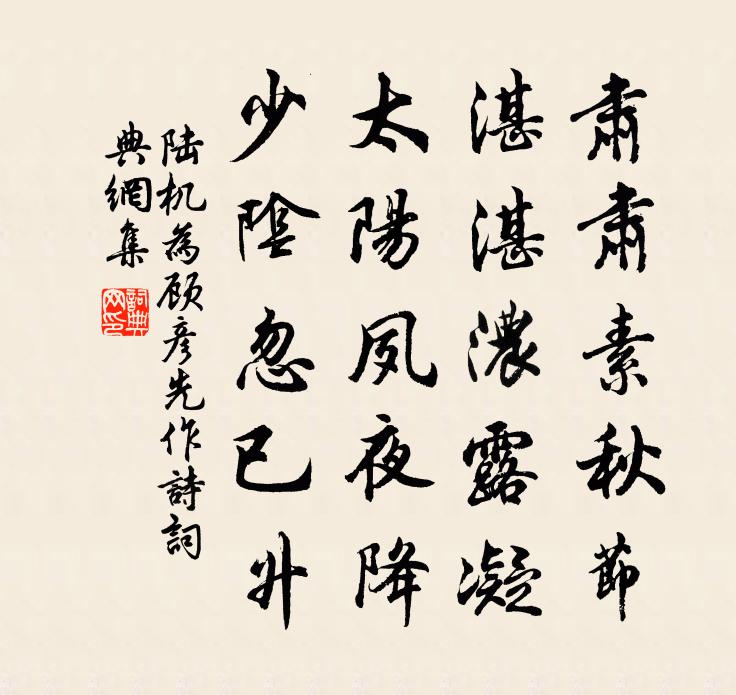 肅肅素秋節
湛湛濃露凝
太陽夙夜降
少陰忽已升
陆机為顾彥先作詩詞
典網集
詞典網印